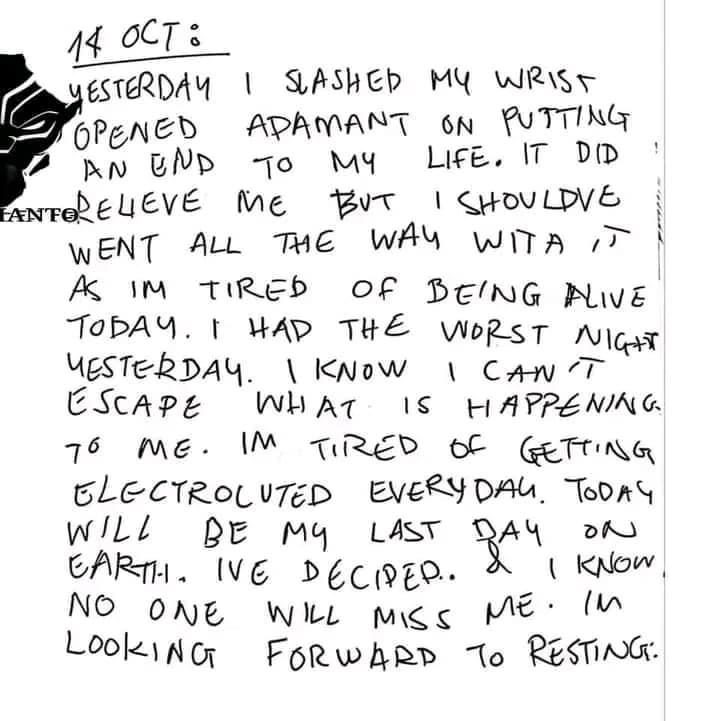 14 OCT:
YESTERDAY I SLASHED MY WRIST
OPENED ADAMANT ON PUTTING
AN END TO MY LIFE. IT DID
RELIEVE ME BUT I SHOULDVE
IANTO
WENT ALL THE WAY WITH IT
AS IM TIRED OF BEING ALIVE
TODAY. I HAD THE WORST NIGHT
YESTERDAY. I KNOW I CAN'T
ESCAPE WHAT IS HAPPENING
TO ME. IM TIRED OF GETTING
ELECTROCUTED EVERYDAY. TODAY
WILL BE MY LAST DAY ON
EARTH. IVE DECIDED. & I KNOW
NO ONE WILL MISS ME. IM
LOOKING FORWARD TO RESTING.